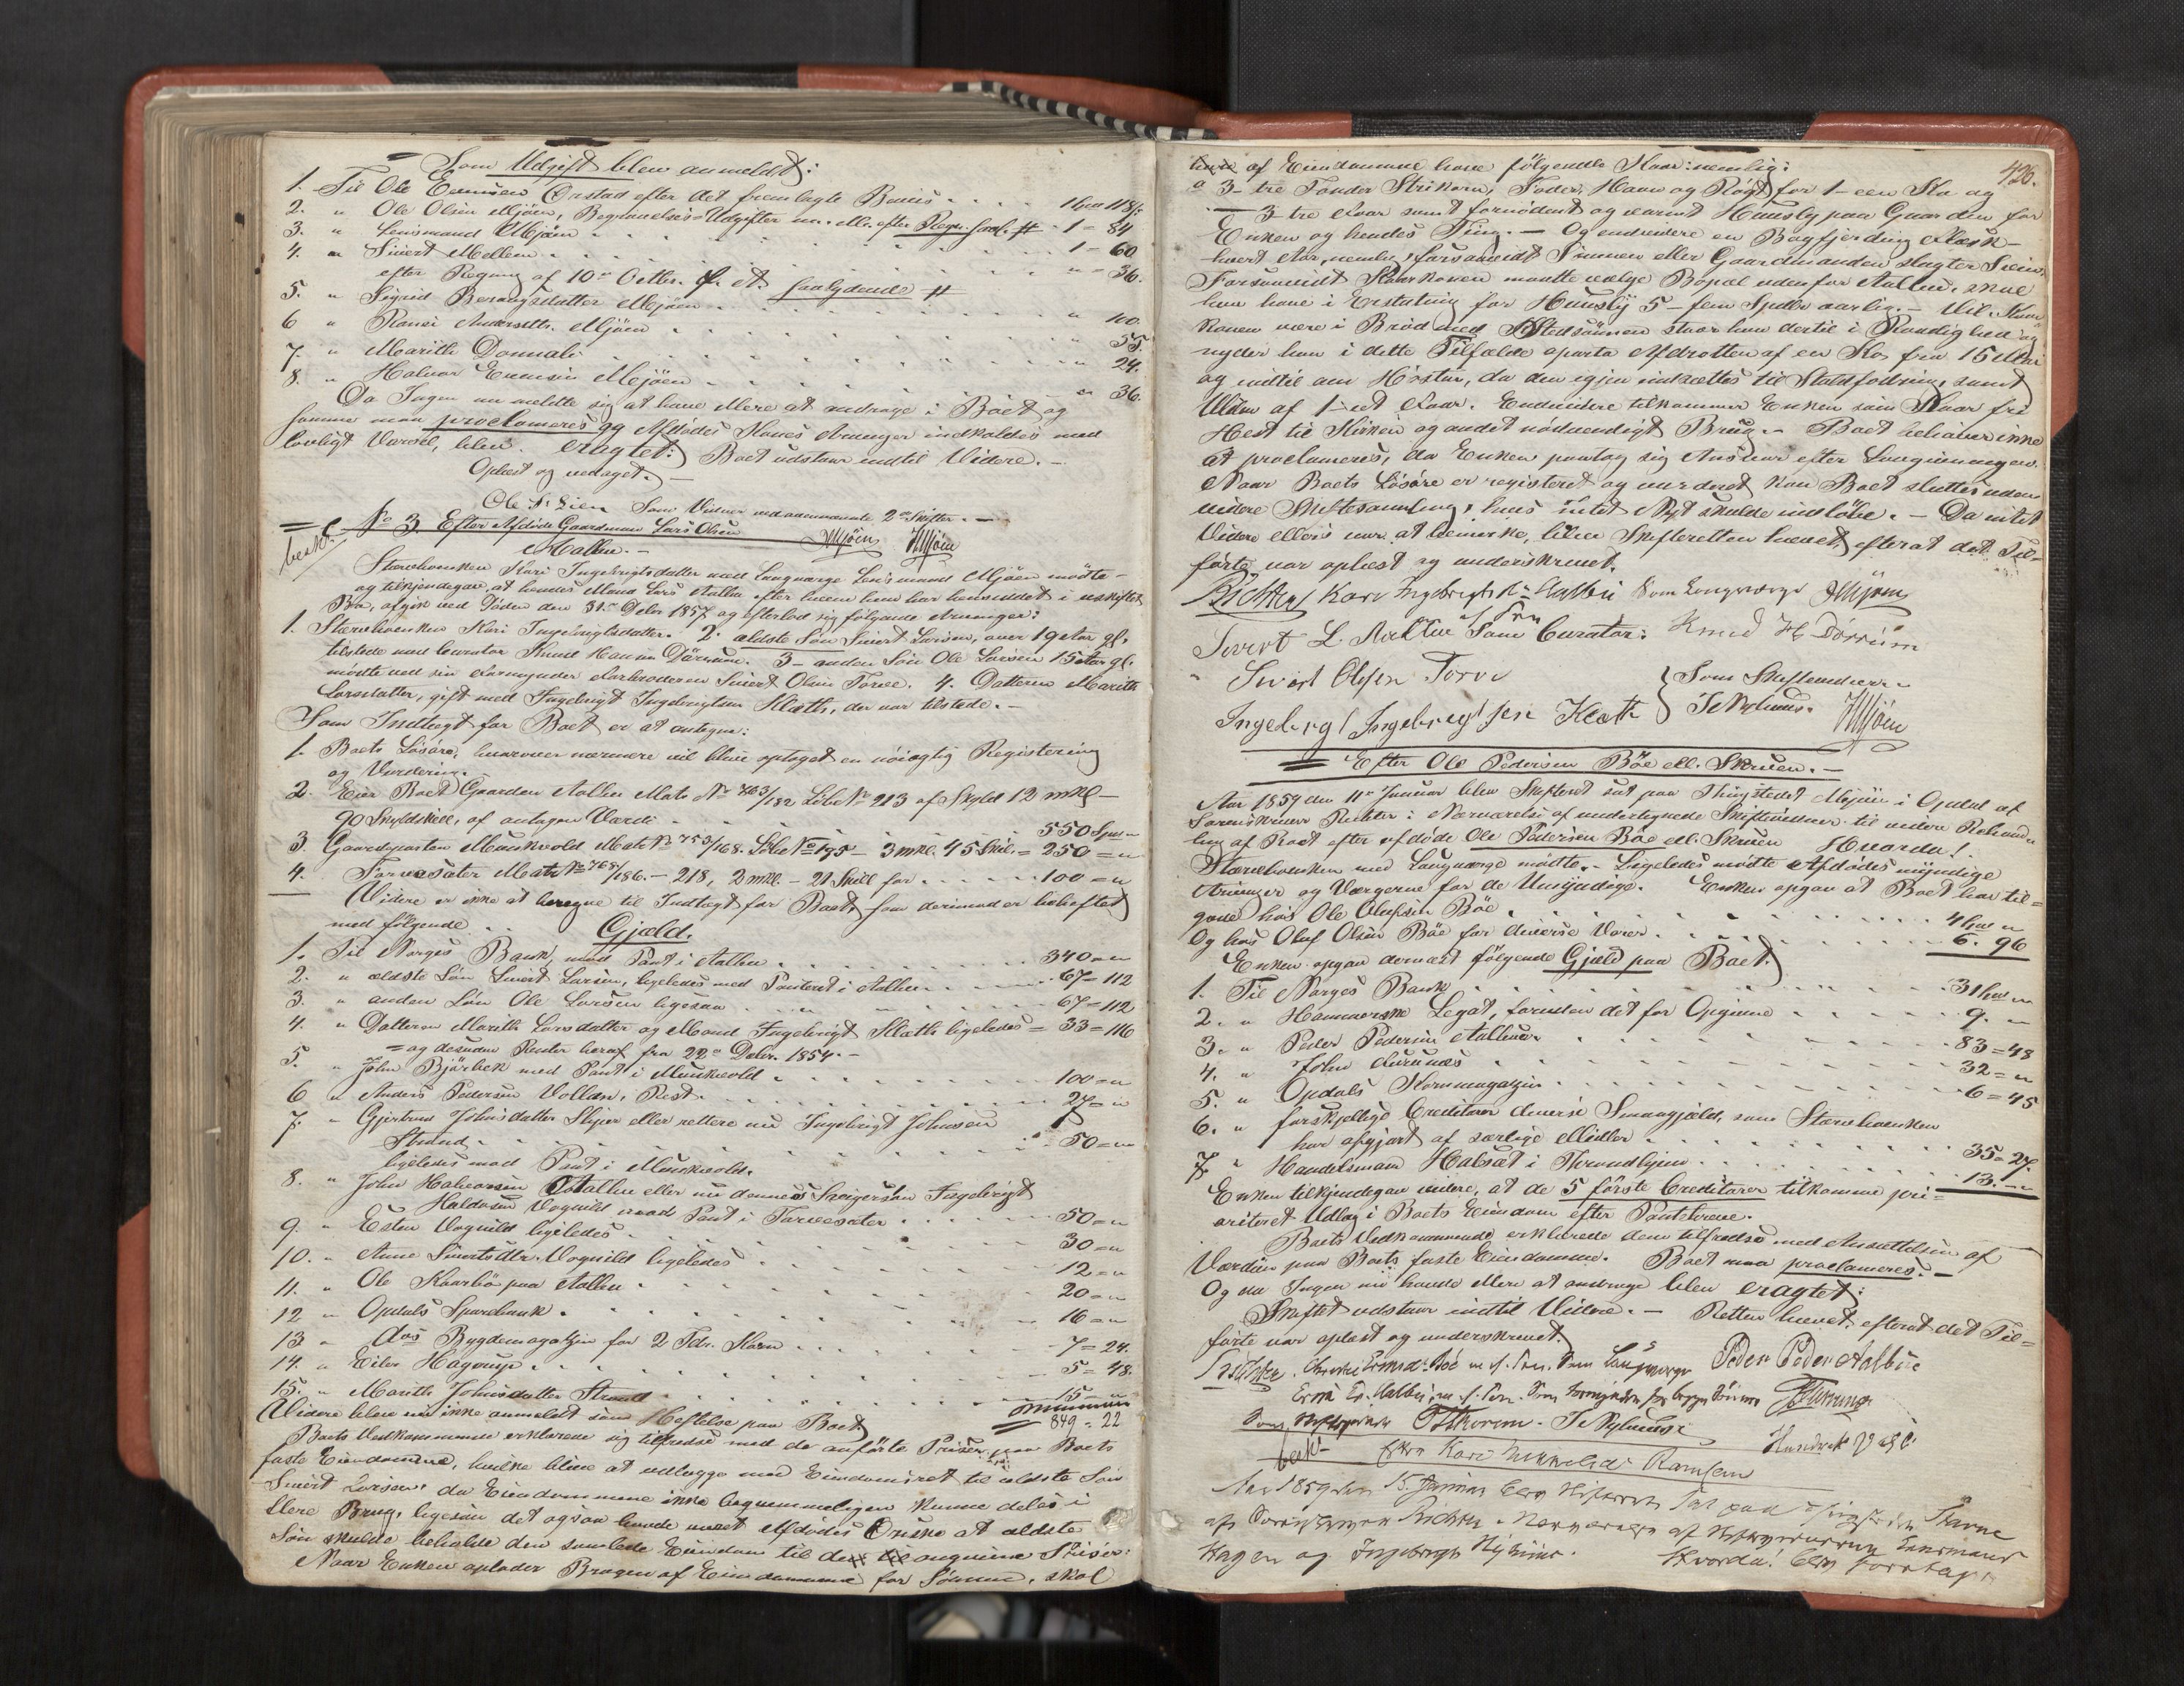 Som Udgift blev anmeldt:
1. Til Ole Evensen Ørstad efter det fremlagte Beviis 1 118
2. " Ole Olsen Mjöen, Begravelses-Udgifter m. m. efter Regn. saal. # 1 = 84
3. " Lensmand Mjöen 1 = 60
4. " Sivert Mellem " = 36.
efter Regning af 10de Octbr. saalydende #
5. " Sigrid Mjöen " 100.
6 " Ranei Andersdtr. Mjöen " 55.
7. " Marith Donnali " 24.
8. " Halvor Evensen Mjöen " 36.
Da Ingen nu meldte sig at have Mere at andrage i Boet og
samme maa proclameres og Afdödes Arvinger indkaldes med
lovligt Varsel, blev eragtet: Boet udstaar indtil Videre. –
Oplæst og vedtaget. –
Ole F. Lien Som Vidner ved ovennævnte 2de Skifter. –
Mjöen
besk. No 3. Efter Afdöde Gaardmand Lars Olsen
Aalbu. –
Stervboenken Kari Ingebrigtsdatter med Laugværge Lensmand Mjöen mödte –
og tilkjendegav, at hendes Mand Lars Aalbu efter hvem hun har hensiddet i uskiftet
Bo, afgik ved Döden den 31te Debr 1857 og efterlod sig fölgende Arvinger:
1. Stervboenken Kari Ingebrigtsdatter. 2. ældste Sön Sivert Larsen, over 19 Aar gl.
tilstede med Curator Knud Dörrum. 3 – anden Sön Ole Larsen 15 Aar gl.
mödte ved sin Formynder Farbroderen Sivert Olsen Torve. 4. Datteren Marith
Larsdatter, gift med Ingebrigt Ingebrigtsen Klæth, der var tilstede. –
Som Indtægt for Boet er at antegne:
1. Boets Lösöre, hvorover nærmere vil blive optaget en nöiagtig Registering
og Vurdering.
2. Eier Boet Gaarden Aalbu Matr No 763/182 Löbe No 213 af Skyld 12 mkl –
90 Skyldskill, af antagen Værdi 550 Spd "
3. Gaardparten Munkvold Matr No 753/168. Löbe No 195 – 3 mkl. 45 Skil. = 250 = "
4. Torvesæter Matr No 768/186. – 218, 2 mkl. – 21 Skill for 100 = "
Videre er ikke at beregne til Indtægt for Boet, som derimod er beheftet
med fölgende Gjæld.
1. Til Norges Bank, med Pant i Aalbu 340 = "
2. " ældste Sön Sivert Larsen, ligeledes med Panteret i Aalbu 67 = 112
3. " anden Sön Ole Larsen ligesaa 67 = 112
4. " Datteren Marith Larsdatter og Mand Ingebrigt Klæth ligeledes = 33 = 116
= og desuden Renter heraf fra 22de Debr. 1854. –
5. " John Bjørbek med Pant i Munkvold 100 = "
6 " Anders Pedersen Vollan, Rest 27 = "
7. " Gjertrud Johnsdatter Stuen eller rettere nu Ingebrigt Johnsen
Strand 50 = "
ligeledes med Pant i Munkvold.
8. " John Halvorsen Aalbu eller nu dennes Svigersön Ingebrigt
Haldosen Vognild med Pant i Torvesæter 50 = "
9. " Esten Vognild ligeledes 30 = "
10. " Anne Sivertsdtr. Vognild ligeledes 12 = "
11. " Ole Kaarbö paa Aalbu 20 = "
12 " Opdals Sparebank 16 = "
13 " dos Bygdemagatzin for 2 Tdr. Korn 7 = 24.
14. " Eiler Hagerup 5 = 48.
15. " Marith Johnsdatter Strand 15 = "
Videre blev nu ikke anmeldt som Heftelse paa Boet = 849 = 22
Boets Vedkommende erklærede sig tilfredse med de anförte Priser paa Boets
faste Eiendomme, hvilke blive at udlægge med Eiendomsret til ældste Sön
Sivert Larsen, da Eiendommene ikke beqvemmeligen kunne deles i
flere Brug, ligesom det ogsaa havde været Afdödes Önske at ældste
Sön skulde beholde den samlede Eiendom til de angivne Priser.
Naar Enken oplader Brugen af Eiendommene for Sönnen, skal
426.
af Eiendommene have fölgende Kaar: nemlig:
a 3 – tre Tönder Strikorn, Foder, Havn og Rögt for 1 – een Ko og
3 tre Faar samt fornödent og varmt Huusly paa Gaarden for
Enken og hendes Ting. – Og endvidere en Bogfjerding Flæsk –
hvert Aar, nemlig, forsaavidt Sönnen eller Gaardmanden slagter Sviin.
Forsaavidt Kaarkonen maatte vælge Bopæl udenfor Aalbu, skal
hun have i Erstatning for Huusly 5 – fem Spdlr aarlig. – Vil Kaar-
konen være i Bröd med Stedsönnen staar hun dertil i Raadighed og
nyder hun i dette Tilfælde aparte Afdrotten af en Ko, fra 15 Mai
og indtil om Hösten, da den igjen indsættes til Staldfodring, samt
Ulden af 1 – et Faar. Endvidere tilkommer Enken som Kaar fri
Hest til Kirken og andet nödvendigt Brug. – Boet behöver ikke
at proclameres, da Enken paatog sig Ansvar efter Lovgivningen.
Naar Boets Lösöre er registeret og vurderet kan Boet sluttes uden
videre Skiftesamling, hvis intet Nyt skulde indlöbe. – Da intet
Videre ellers var at bemærke, blev Skifteretten hævet, efterat det Til=
förte var oplæst og underskrevet.
Richter Kari Ingebrigtsdr Aalbu Som Laugværge Mjöen
m. f. Pen
Sivert L. Aalbu Som Curator: Knud H. Dörrum
Sivert Olsen Torve } Som Skiftevidner:
Ingebrigt Ingebrigtsen Klæth Mjöen
= Efter Ole Pedersen Böe ell. Skruen. –
Aar 1859 den 11te Januar blev Skifteret sat paa Thingstedet Mjöen i Opdal af
Sorenskriver Richter i Nærværelse af undertegnede Skiftevidner til videre Behand=
ling af Boet efter afdöde Ole Pedersen Böe ell. Skruen Hvorda!
Stervboenken med Laugværge mödte. – Ligeledes mödte Afdödes myndige
Arvinger og Værgerne for de Umyndige. Enken opgav at Boet har til=
gode hos Ole Olufsen Böe 4
Og hos Oluf Olsen Böe for diverse Varer 6. 96
Enken opgav dernæst fölgende Gjæld paa Boet:
1. Til Norges Bank 31
2. " Hammerske Legat, foruden det for Opgivne 9. "
3. " Peder Pedersen Aalbu 83 = 48
4. " John Aurunes 32 = "
5. " Opdals Kornmagatzin 6 = 45
6. " forskjellige Creditorer diverse Smaagjæld, som Stervboenken
har afgjort af særlige Midler 35 = 27.
7. " Handelsmand Habsæt i Throndhjem 13. "
Enken tilkjendegav videre, at de 5 förste Creditorer tilkomme pri=
oriteret Udlæg i Boets Eiendom efter Pantebreve.
Boets Vedkommende erklærede dem tilfredse med Ansættelsen af
Værdien paa Boets faste Eiendomme. Boet maa proclameres. –
Og da Ingen nu havde Mere at andrage blev eragtet:
Skiftet udstaar indtil Videre. – Retten hævet, efterat det Til=
förte var oplæst og underskrevet.
Richter. Böe m. f. Pen. Som Laugværge Peder Peder Aalbu
Aalbu, m. f. Pen. Som Formynder for
Som Skiftevidner
besk.
Kari Ramsem
Aar 1859 den 15. Januar blev Skifteret sat paa Thingstedet
af Sorenskriver Richter i Nærværelse af Lensmand
Hagen og Ingebrigt Nyhuus. Hvorda! blev foretaget